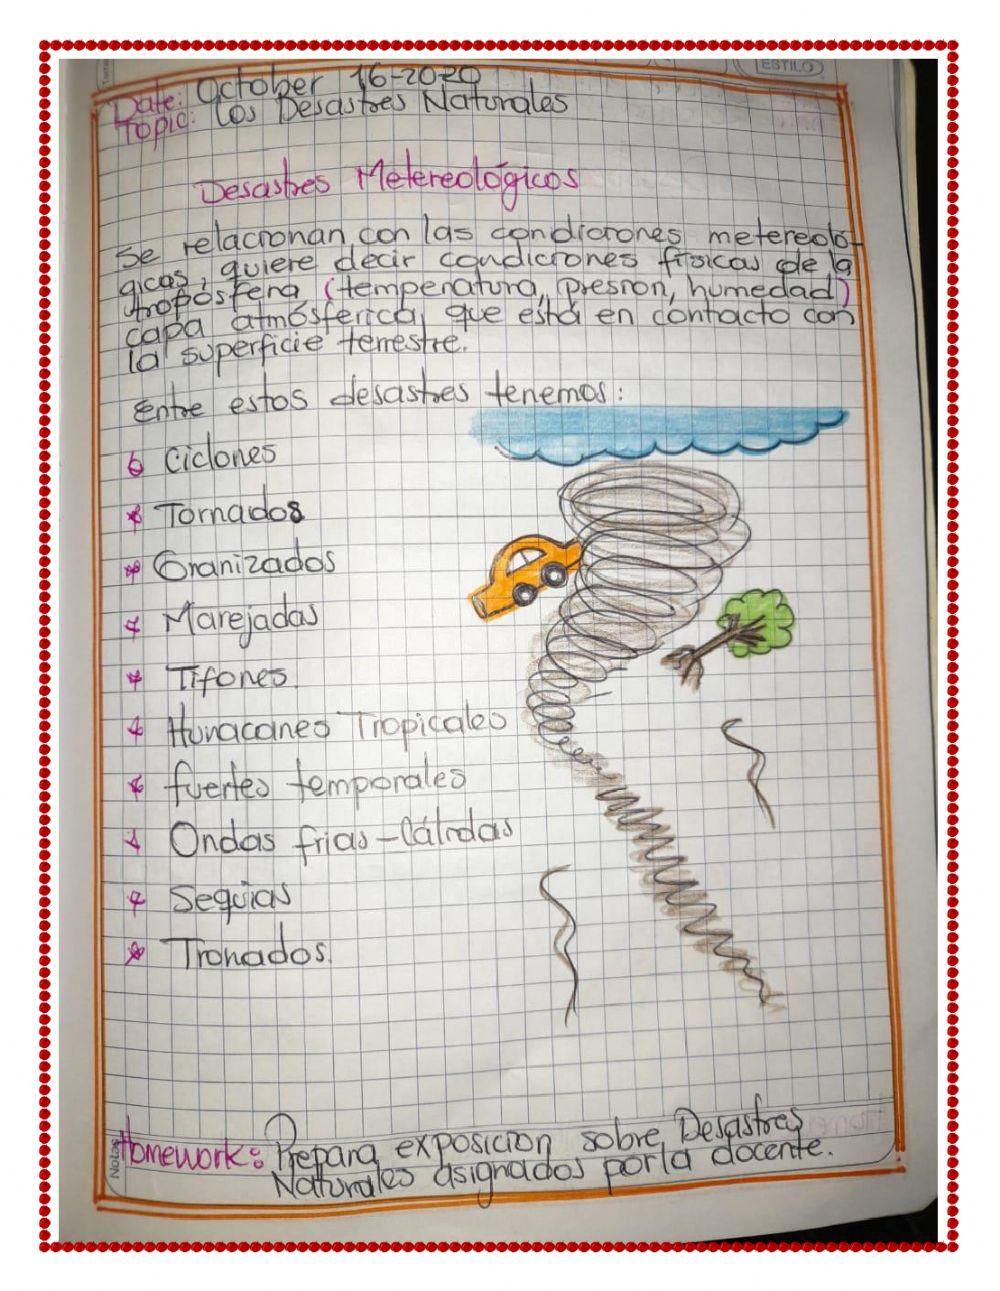 ESTILO
Date: October 16-2020
Topic: Los Desastres Naturales
Desastres Metereológicos
Se relacionan con las condiciones metereoló-
gicas, quiere decir condiciones físicas de la
tropósfera (temperatura, presion, humedad)
capa atmósferica, que está en contacto con
la superficie terrestre.
Entre estos desastres tenemos:
Ciclones
* Tornados
* Granizados
* Marejadas
* Tifones.
* Huracanes Tropicales
* fuertes temporales
* Ondas frias-Cálidas
* Sequias
* Tronados.
Notas
Homework: Prepara exposicion sobre Desastres
Naturales asignados por la docente.